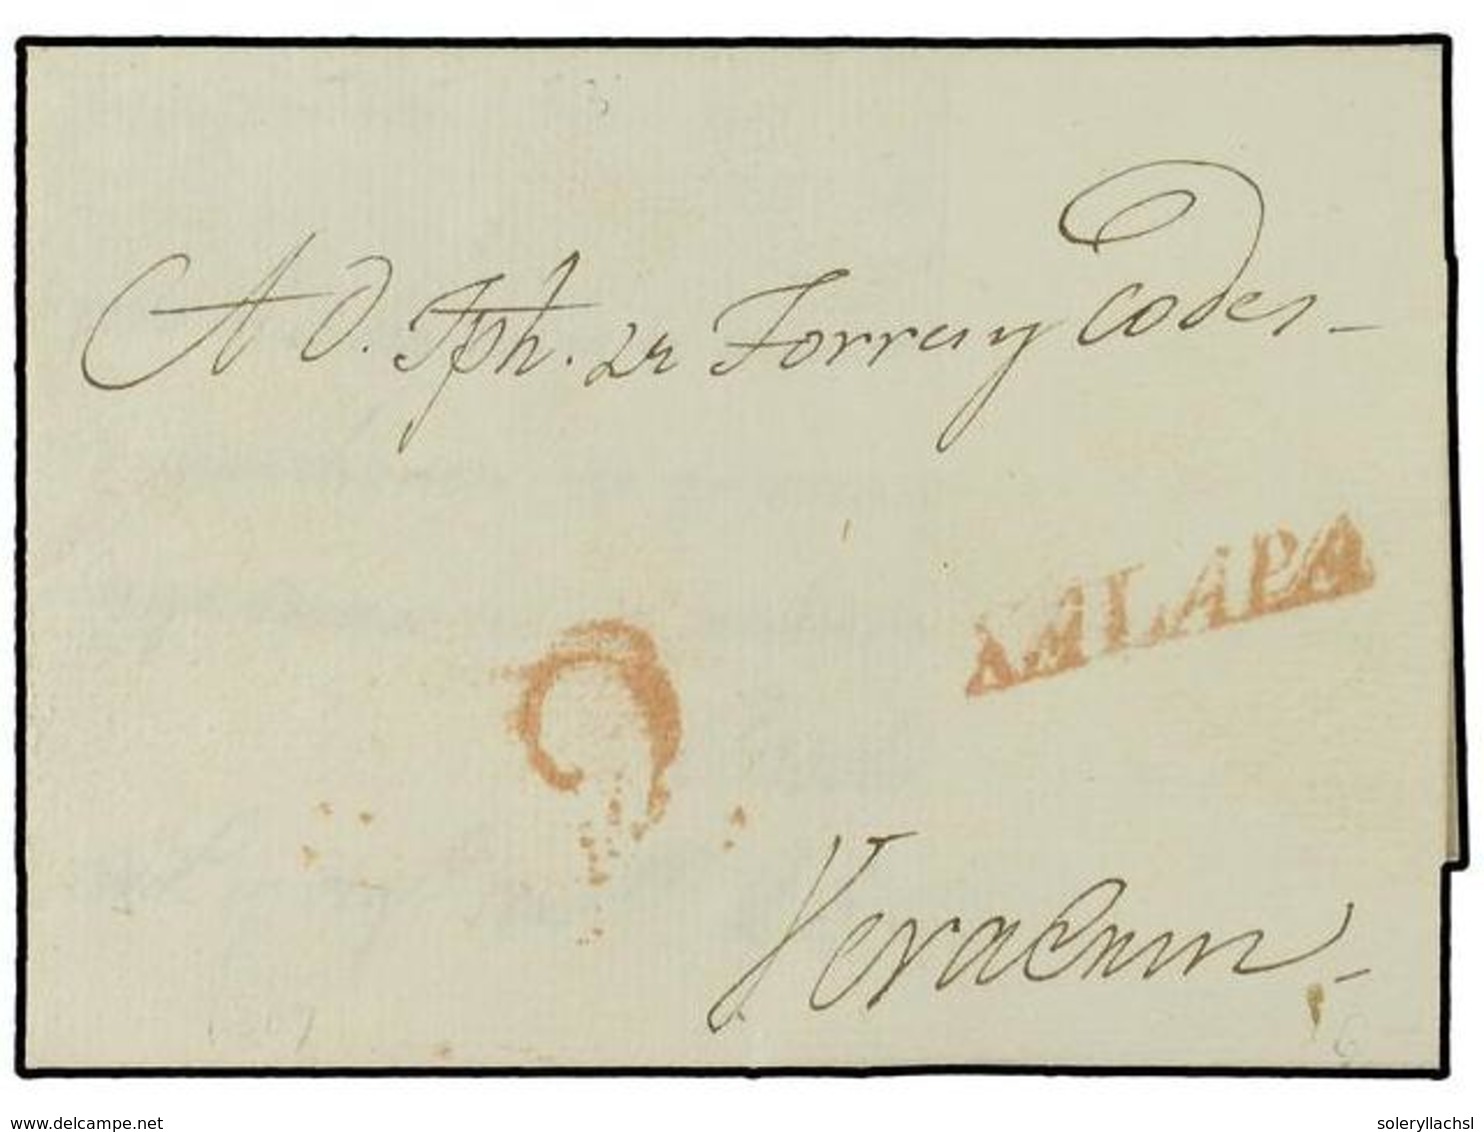 A D. Jph. de Torres y Codes
XALAPA
Veracruz
delcampe.net
soleryllachsl